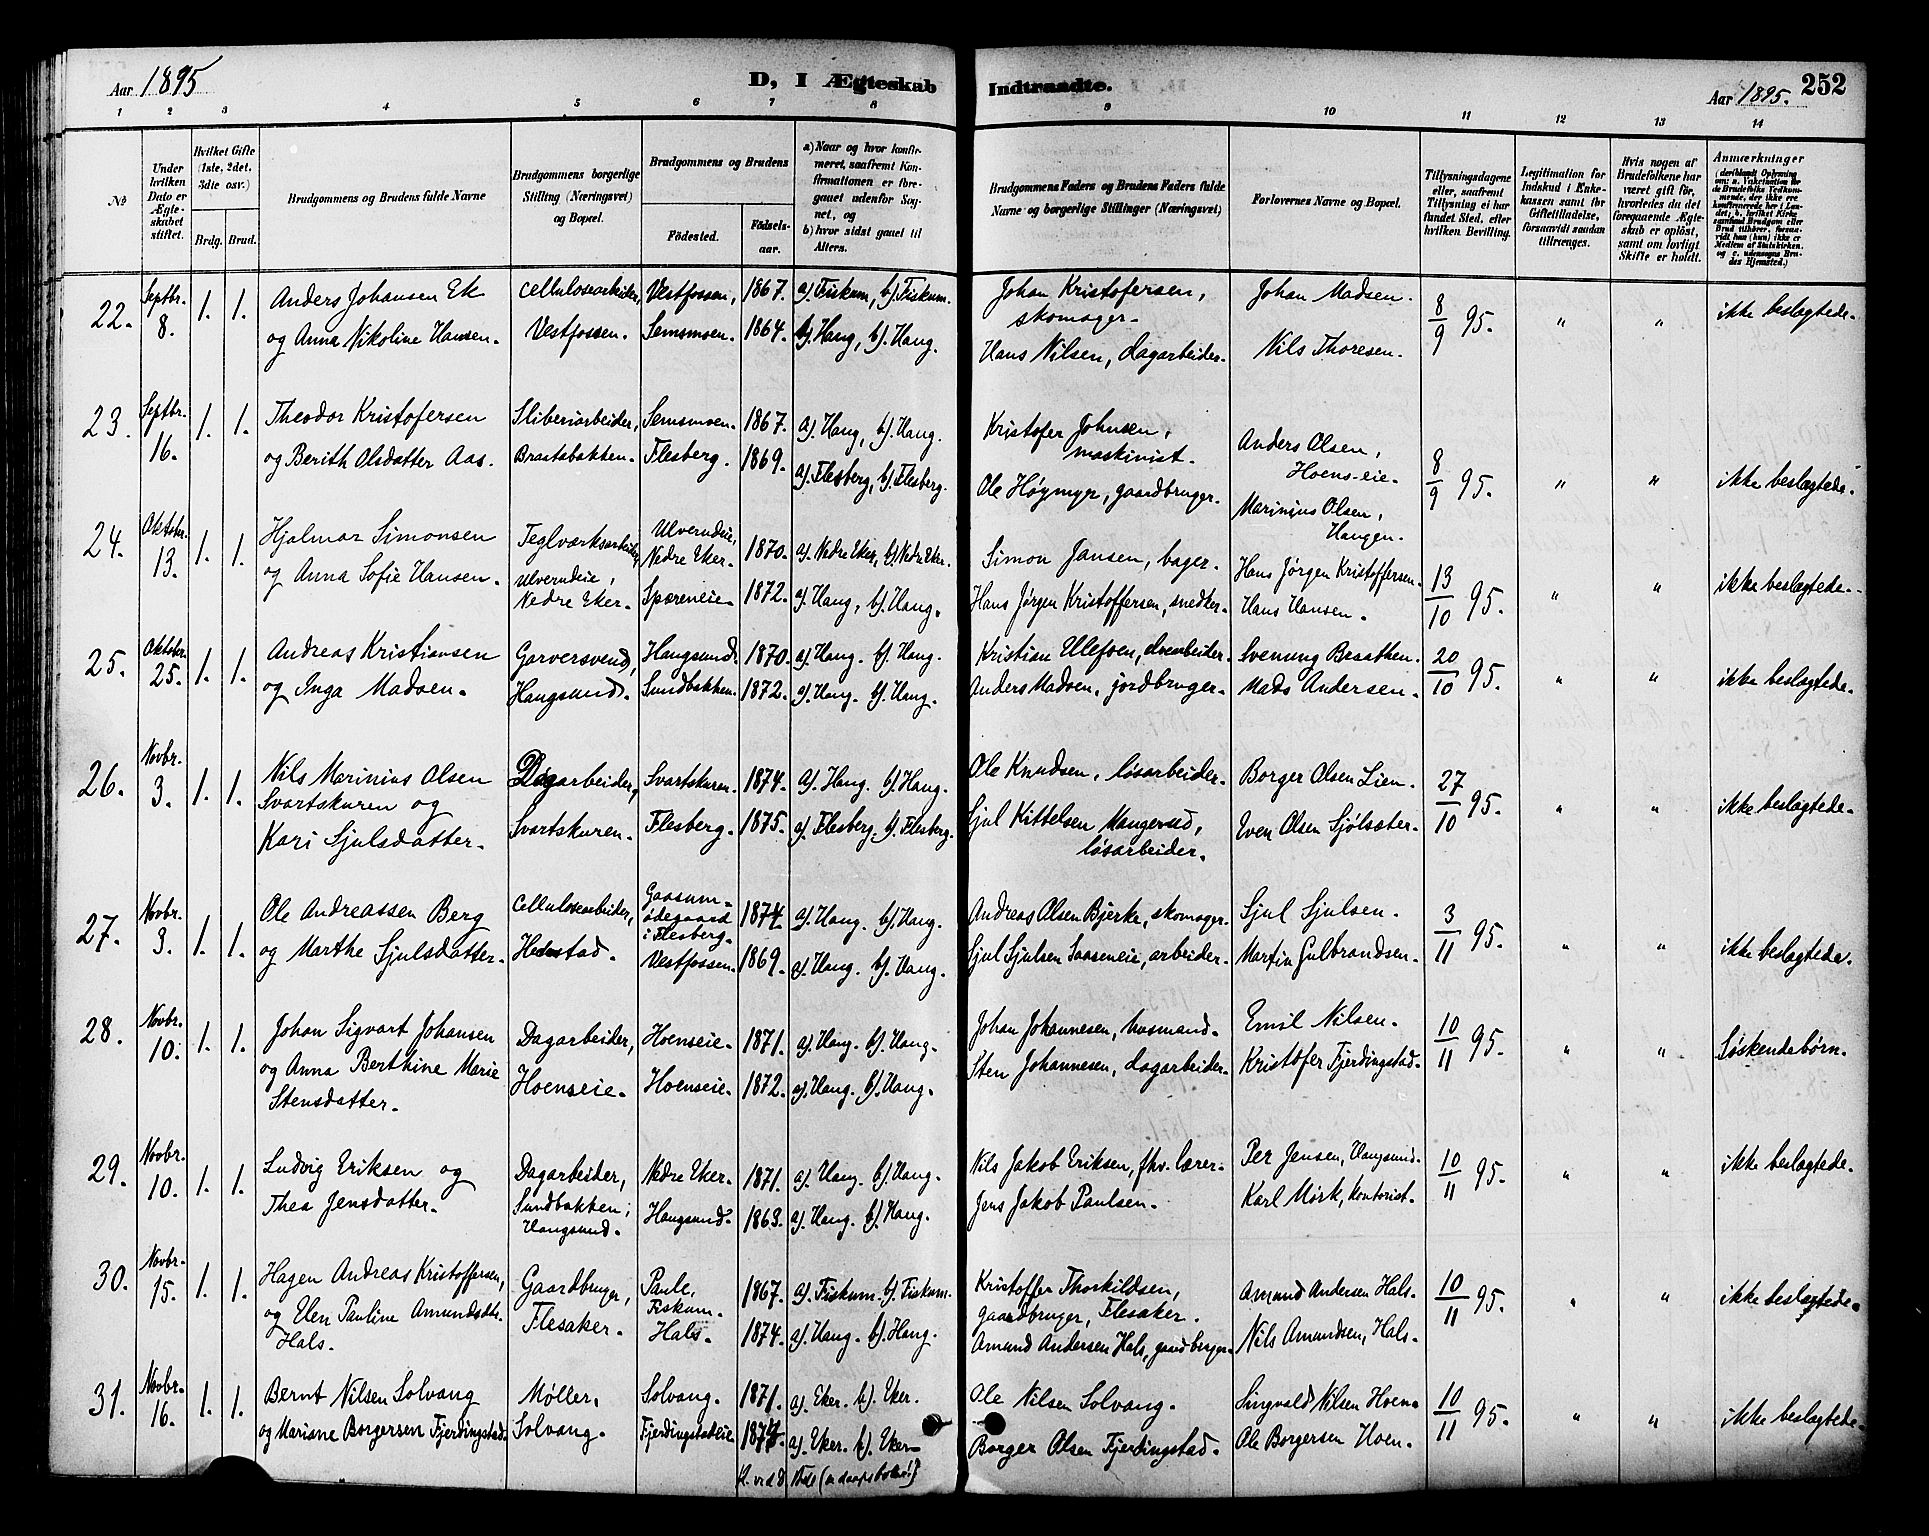 Aar 1895
D, I Ægteskab
Indtraadte.
Aar 1895.
252
1 2 3 4 5 6 7 8 9 10 11 12 13 14
No
Under hvilken Dato er Ægteskabet stiftet.
Hvilket Gifte (1ste, 2det, 3die osv.)
Brdg. Brud.
Brudgommens og Brudens fulde Navne
Brudgommens borgerlige Stilling (Næringsvei) og Bopæl.
Brudgommens og Brudens
Födested.
Födsels-aar.
a) Naar og hvor konfirmeret, saafremt Konfirmationen er foregaaet udenfor Sognet, og
b) hvor sidst gaaet til Alters.
Brudgommens Faders og Brudens Faders fulde Navne og borgerlige Stillinger (Næringsvei)
Forlovernes Navne og Bopæl.
Tillysningsdagene eller, saafremt Tillysning ei har fundet Sted, efter hvilken Bevilling.
Legitimation for Indskud i Enkekassen samt for Giftetilladelse, forsaavidt saadan tiltrænges.
Hvis nogen af Brudefolkene har været gift för, hvorledes da det foregaaende Ægteskab er oplöst, samt om lovligt Skifte er holdt.
Anmærkninger
22. Septbr. 8. 1. 1. Anders Johansen Ek Cellulosearbeider, Vestfossen, 1867. a). Fiskum, b). Fiskum. Johan Kristofersen, skomager. Johan Madsen. 8/9 95. " " ikke beslagtede.
og Anna Nikoline Hansen. Vestfossen. Semsmoen. 1864. a). Haug, b). Haug. Hans Nilsen, dagarbeider. Nils Thoresen.
23. Septbr. 16. 1. 1. Theodor Kristofersen Sliberiarbeider, Semsmoen. 1867. a). Haug, b). Haug. Kristofer Johnsen, maskinist. Anders Olsen, Hoens-eie. 8/9 95. " " ikke beslagtede.
og Berith Olsdatter Aas. Braatabakken. Flesberg. 1869. a). Flesberg, b). Flesberg. Ole Høymyr, gaardbruger. Marinius Olsen, Haugen.
24. Oktober. 13. 1. 1. Hjalmar Simonsen Teglværksarbeider, Ulverndeie, Nedre Eker. 1870. a). Nedre Eker, b). Nedre Eker. Simon Jansen, bager. Hans Jørgen Kristoffersen. 13/10 95. " " ikke beslagtede.
og Anna Sofie Hansen. Ulverndeie, Nedre Eker. Spereneie 1872. a). Haug, b). Haug. Hans Jørgen Kristoffersen, snedker. Hans Hansen.
25. Oktober. 25. 1. 1. Andreas Kristiansen Garversvend, Haugsund. 1870. a). Haug. b). Haug. Kristian Ullefoen, elvearbeider. Svenung Braathen. 20/10 95. " " ikke beslagtede.
og Inga Madsen. Haugsund. Sundbakken. 1872. a). Haug. b). Haug. Anders Madsen, jordbruger. Mads Andersen.
26. Novbr. 3. 1. 1. Nils Marinius Olsen Svartskuren og Dagarbeider, Svartskuren. 1874. a). Haug. b). Haug. Ole Knudsen, løsarbeider. Borger Olsen Lien. 27/10 95. " " ikke beslagtede.
Kari Sjulsdatter. Svartskuren. Flesberg. 1875. a). Flesberg. b). Flesberg. Sjul Kittelsen Mangerud, løsarbeider. Even Olsen Sjölsæter.
27. Novbr. 3. 1. 1. Ole Andreassen Berg Cellulosearbeider, Gaasum-ødegaard i Flesberg. 1874 a). Haug. b). Haug. Andreas Olsen Bjerke, skomager. Sjul Sjulsen. 3/11 95. " " ikke beslagtede.
og Marthe Sjulsdatter. Hedstad. Vestfossen. 1869. a). Haug. b). Haug. Sjul Sjulsen Saaseneie, arbeider. Martin Gulbrandsen.
28. Novbr. 10. 1. 1. Johan Sigvart Johansen Dagarbeider, Hoenseie. 1871. a). Haug. b). Haug. Johan Johannesen, husmand. Emil Nilsen. 10/11 95. " " Søskendebørn.
og Anna Berthine Marie Stensdatter. Hoenseie. Hoenseie. 1872. a). Haug. b). Haug. Sten Johannesen, dagarbeider. Kristofer Fjerdingstad.
29. Novbr. 10. 1. 1. Ludvig Eriksen og Dagarbeider, Nedre Eker. 1871. a). Haug. b). Haug. Nils Jakob Eriksen, fhv. lærer. Per Jensen, Haugsund. 10/11 95. " " ikke beslagtede.
Thea Jensdatter. Sundbakken, Haugsund. Haugsund. 1863. a). Haug. b). Haug. Jens Jakob Paulsen. Karl Mörk, kontorist.
30. Novbr. 15. 1. 1. Hagen Andreas Kristoffersen, Gaardbruger, Paule, Fiskum. 1867. a). Fiskum. b). Fiskum. Kristoffer Thorkildsen, gaardbruger, Flesaker. Amund Andersen Hals. 10/11 95. " " ikke beslagtede.
og Elen Pauline Amundsdtr. Hals. Flesaker. Hals. 1874. a). Haug. b). Haug. Amund Andersen Hals, gaardbruger. Nils Amundsen, Hals.
31. Novbr. 16. 1. 1. Bernt Nilsen Solvang Møller. Solvang. 1871. a). Eker. b). Eker. Ole Nilsen Solvang. Singvald Nilsen Hoen. 10/11 95. " " ikke beslagtede.
og Mariane Borgersen Fjerdingstad. Solvang. Fjerdingstadeie 1874. a). Eker. b). Eker. Borger Olsen Fjerdingstad. Ole Borgersen Hoen.